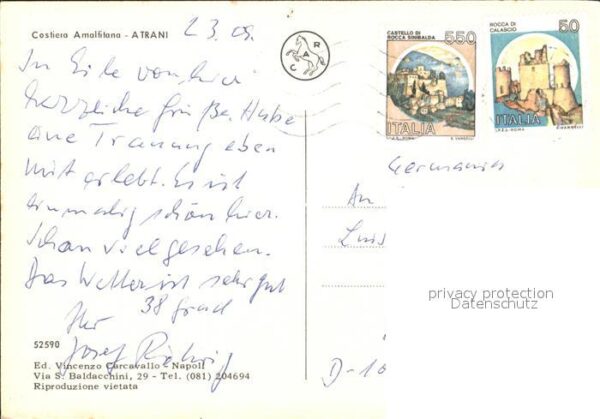 Costiera Amalfitana - ATRANI
23.09.
CARC
CASTELLO DI
ROCCA SINIBALDA
550
ITALIA
I.P.Z.S.-ROMA
E. VANGELLI
ROCCA DI
CALASCIO
50
ITALIA
I.P.Z.S.-ROMA
E. VANGELLI
In Eile von hier
herzliche Grüße. Habe
eine Trauung eben
miterlebt. Es ist
einmalig schön hier.
Schon viel gesehen.
Das Wetter ist sehr gut
38 Grad
Ihr
Josef
Germania
An
Luis
D-10
privacy protection
Datenschutz
52590
Ed. Vincenzo Carcavallo - Napoli
Via S. Baldacchini, 29 - Tel. (081) 204694
Riproduzione vietata